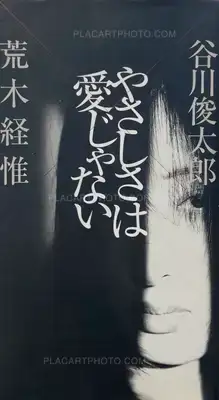 PLACARTPHOTO.COM
谷川俊太郎
やさしさは
愛じゃない
荒木経惟
PLACARTPHOTO.COM
PLACARTPHOTO.COM